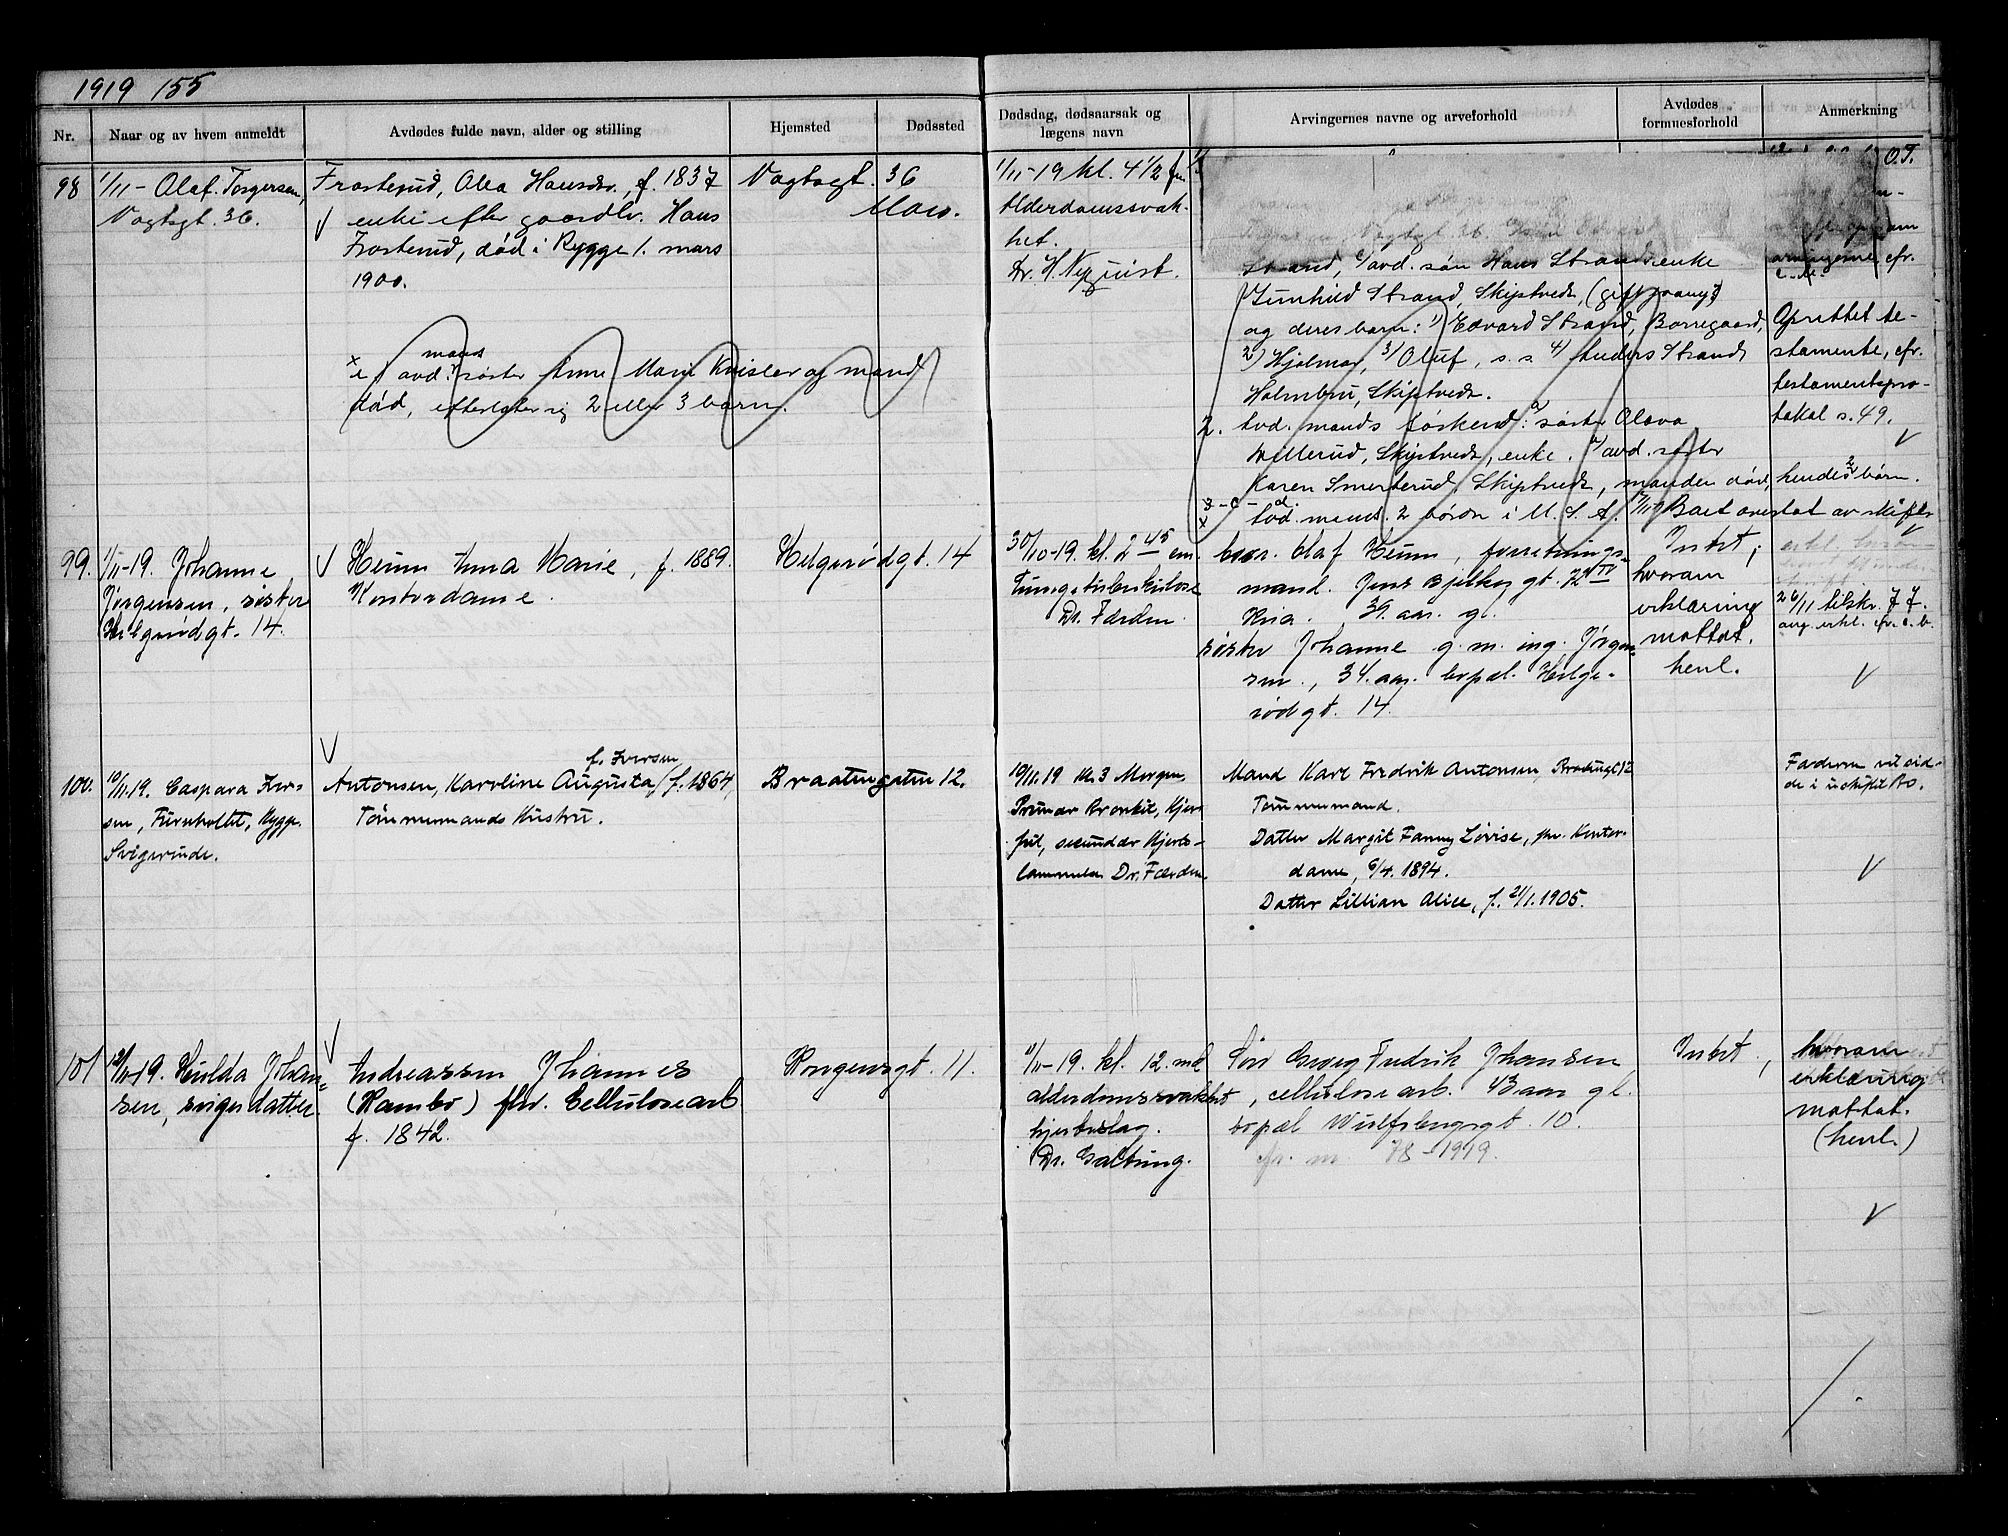 1919 155
Nr.
Naar og av hvem anmeldt
Avdødes fulde navn, alder og stilling
Hjemsted
Dødssted
Dødsdag, dødsaarsak og
lægens navn
Arvingernes navne og arveforhold
Avdødes
formuesforhold
Anmerkning
98
1/11 - Olaf. Torgersen,
Vogtsgt. 36.
Frosterud, Olea Hansdtr., f. 1837
enke efter gaardbr. Hans
Frosterud, død i Rygge 1. mars
1900.
x
e/ avd. mands søster Anne Marie Kvisler og mand
død, efterlater sig 2 eller 3 barn.
Vogtsgt. 36
Moss.
1/11-19 kl. 4 1/2 fm.
Alderdomssvak-
het.
Dr. H. Nyquist.
Strand, avd. søn Hans Strands enke
Gunhild Strand, Skiptvedt, (gift paany?)
og deres barn: 1) Edvard Strand, Borregaard,
2) Hjalmar, 3) Oluf, s. s. 4) Anders Strand
Holmbru, Skiptvedt.
2. Avd. mands søskend: søster Olava
Skiptvedt, enke. avd. søster
Karen Smerterud, Skiptvedt, manden død, hendes 2 børn.
avd. mands 2 brødre i U. S. A.
O.T.
arvingerne, cfr.
Oprettet te-
stamente, cfr.
testamentspro-
tokol s. 49.
Boet overlat av skifte
99.
1/11-19. Johanne
Jørgensen, søster
Helgerødgt. 14.
Heum Anna Marie, f. 1889.
Kontordame.
Helgerødgt. 14
30/10-19. kl. 2 45 em.
Lungetuberkulose
Dr. Færden.
bror. Olaf Heum, forretnings-
mand. Jens Bjelkes gt. 72 IV
Kria. 39. aar. gl.
søster Johanne g. m. ing. Jørgen-
sen., 34. aar. bopæl. Helge-
rødgt. 14.
Intet;
hvorom
erklæring
mottat.
henl.
26/11 tilskr. J J.
ang. erkl. cfr. c. b.
100.
10/11.19. Caspara Iver-
sen, Furuholtet, Rygge.
Svigerinde.
f. Iversen
Antonsen, Karoline Augusta / f. 1864,
Tømmermands Hustru.
Braatengaten 12.
10/11.19 Kl. 3 Morgen.
Primær Bronkit, Hjert-
feil, secundær Hjerte-
lammelse Dr. Færden.
Mand Karl Fredrik Antonsen Braatengt 12
Tømmermand.
Datter Margit Fanny Lovise, fhv. Kontor-
dame, 6/4. 1894.
Datter Lillian Alice, f. 21/1. 1905.
Faderen vil sid-
de i uskiftet Bo.
101
12/11-19. Hulda Johan-
sen, svigerdatter.
Andreassen Johannes
(Rambø) fhv. Cellulosearb
f. 1842.
Kongensgt. 11.
11/11-19. kl. 12. md
alderdomssvakhet
hjerteslag.
Dr. Galtung.
Søn Georg Fredrik Johansen
, cellulosearb. 43 aar gl.
bopæl Wulfsbergsgt. 10.
cfr. nr. 78-1919.
Intet,
hvorom
erklæring
mottat.
(henl.)